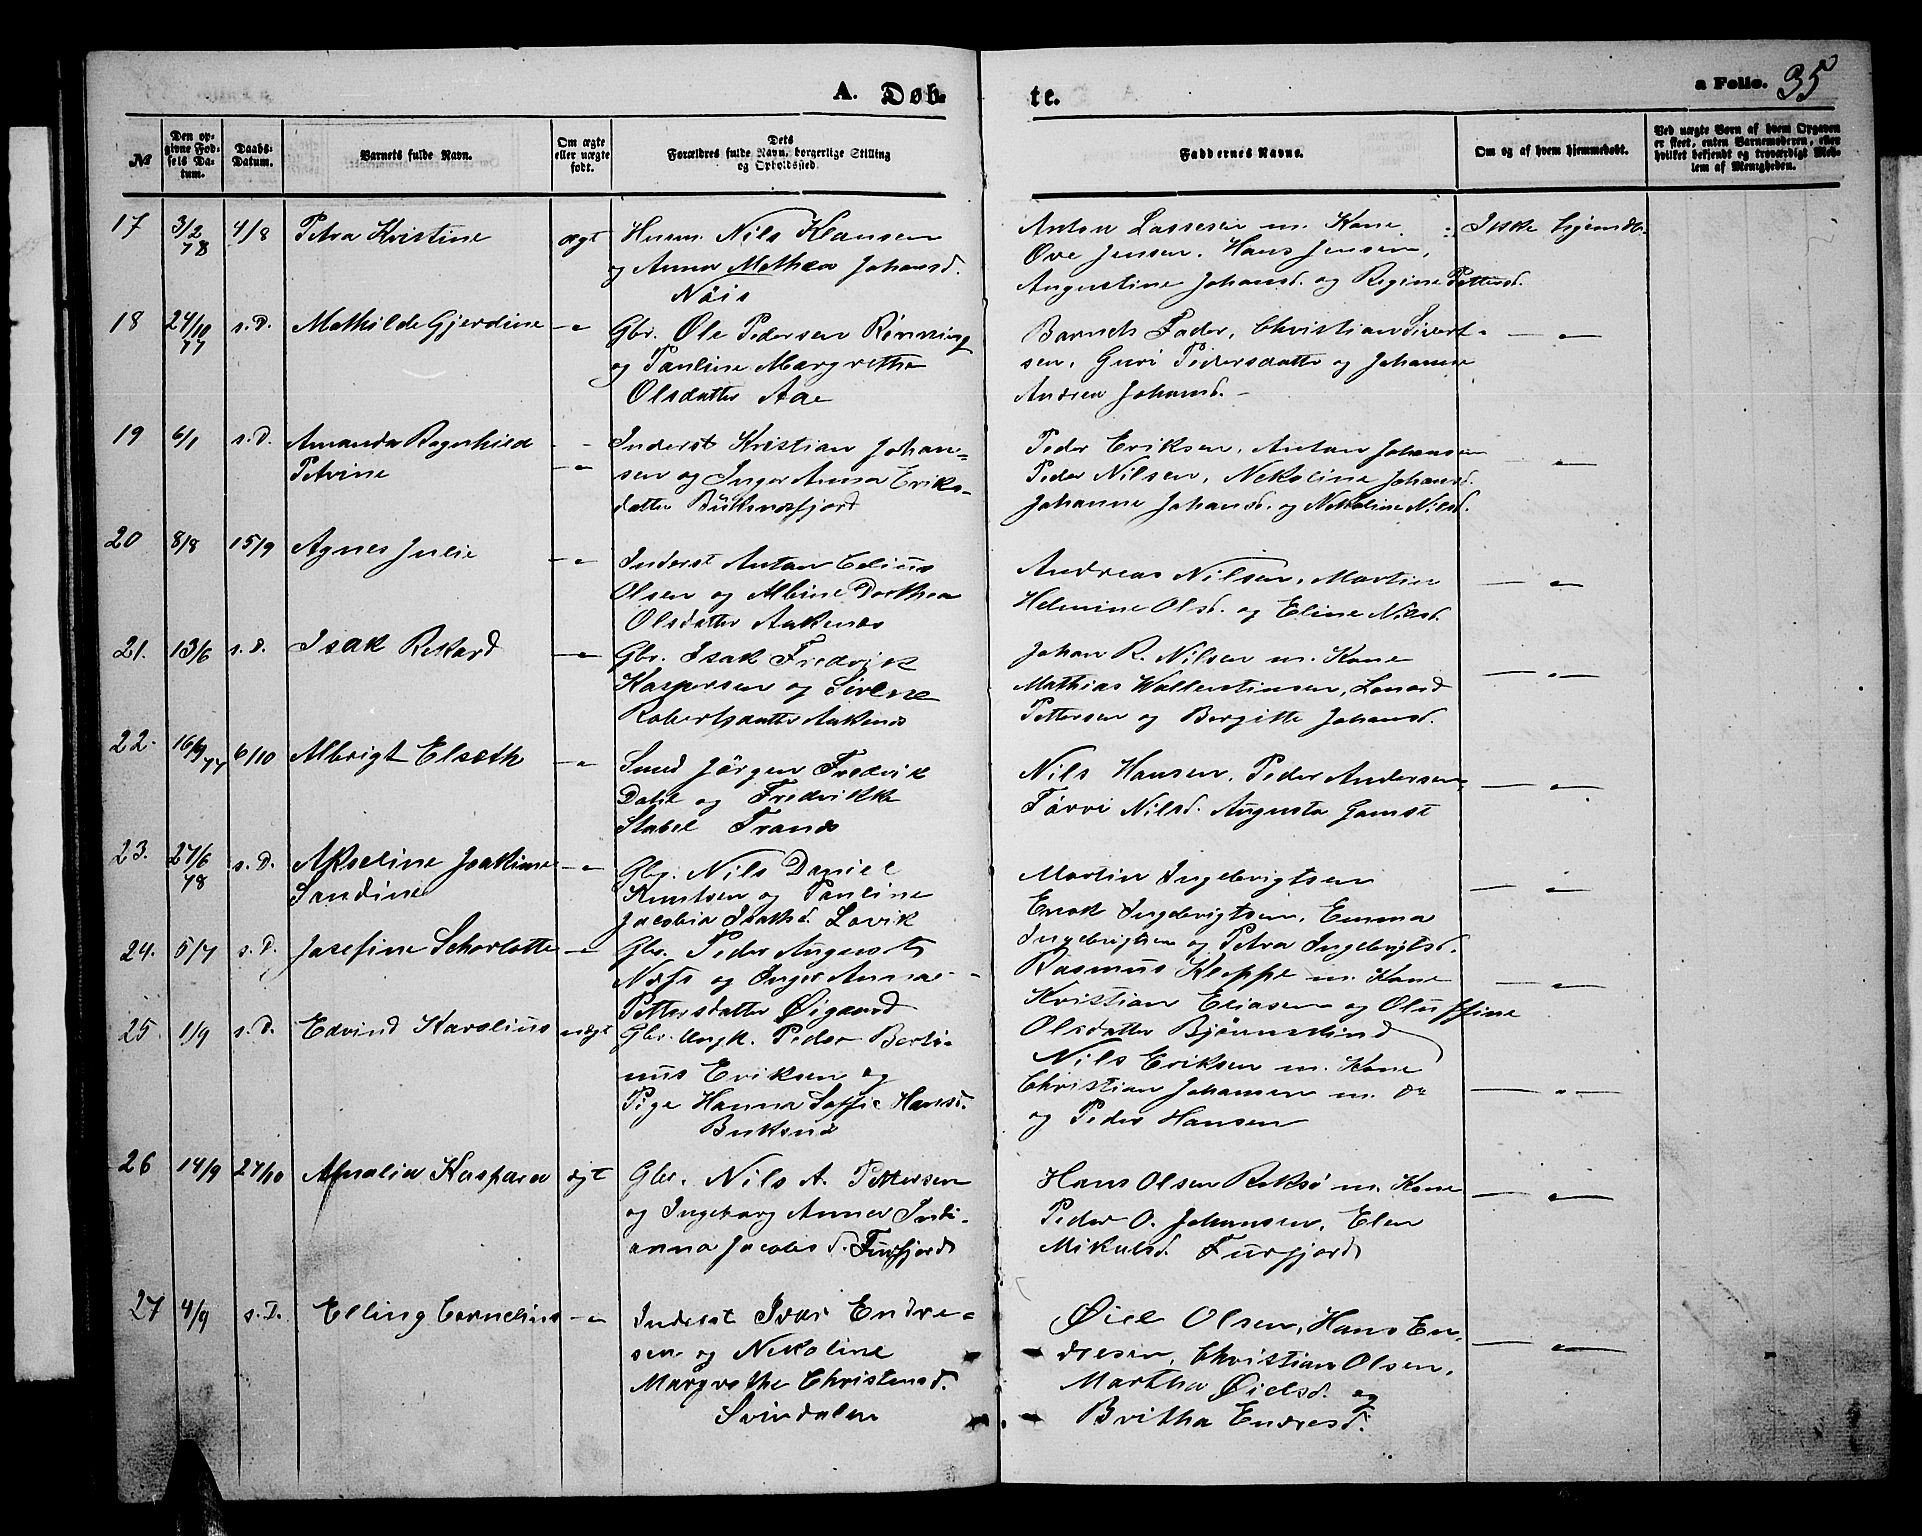 A. Døb- te. a Folio. 35
№ Den opgivne Fødsels Datum. Daabs-Datum. Barnets fulde Navn. Om ægte eller uægte født. Dets Forældres fulde Navn, borgerlige Stilling og Opholdssted. Faddernes Navne. Om og af hvem hjemmedøbt. Ved uægte Børn af hvem Opgaven er skeet, enten Barnemoderen, eller hvilket bekjendt og troværdigt Medlem af Menigheden.
17 3/2 78 4/8 Petra Kristine ægt Husm. Nils Klausen
og Anna Mathea Johansd.
Nöis
Anton Lassesen m. Kone
Ove Jensen, Hans Jensen,
Augustine Johansd. og Regine Pettersd.
Ikke hjemdb.
18 24/10 77 s.D. Mathilde Gjerdine —"— Gbr. Ole Pedersen Rönning
og Pauline Margrethe
Olsdatter Aae
Barnets Fader, Christian Sivert-
sen, Guri Pedersdatter og Johanne
Andrea Johansd. —
— " —
19 6/1 s.D. Amanda Ragnhild
Petrine
—"— Inderst Kristian Johan-
sen og Inger Anna Eriks-
datter Buksnesfjord
Peder Eriksen, Antan Johansen
Peder Nilsen, Nekoline Johansd.
Johanne Johansd. og Nekoline Nilsd.
— " —
20 8/8 15/9 Agnes Julie —"— Inderst Antan Edius
Olsen og Albine Dorthea
Olsdatter Aaknes
Andreas Nilsen, Martin
Helmine Olsd. og Eline Nilsd.
— " —
21. 13/6 s.D. Isak Rekard —"— Gbr. Isak Fredrik
Kaspersen og Sirene
Robertsdatter Aaknes
Johan R. Nilsen m. Kone
Mathias Wallentinsen, Lenard
Pettersen og Bergitte Johansd.
— " —
22. 16/9 77 6/10 Albrigt Elseth —"— Smed Jörgen Fredrik
Dahl og Fredrikke
Stabel Tranes
Nils Hansen, Peder Andersen
Törri Nilsd. Augusta Gamst
— " —
23. 27/6 78 s.D. Akseline Joakime
Sandine
—"— Gbr. Nils Daniel
Knutsen og Pauline
Jacobia Isaksd. Lovik
Martin Ingebrigtsen
Enok Ingebrigtsen, Emma
Ingebrigtsen og Petra Ingebrigtsd.
— " —
24. 5/7 s.D. Josefine Schorlotte —"— Gbr. Peder August
Næss og Inger Anna
Pettersdatter Øigaard
Rasmus Kleppe m. Kone
Kristian Eliasen og Oluffine
Olsdatter Bjørnskind
— " —
25. 1/9 s.D. Edvind Karolius uægt Gbr. Ungk. Peder Berti-
nus Eriksen og
Pige Hanna Soffie Hansd.
Buksnæ
Nils Eriksen m. Kone
Christian Johansen m. do
og Peder Hansen
— " —
26 14/9 27/10 Amalia Kaspara ægt Gbr. Nils A. Pettersen
og Ingeborg Anna Indi-
anna Jacobsd. Furfjord
Hans Olsen Roksø m. Kone
Peder O. Johansen, Elen
Mikalsd. Furfjord
— " —
27 4/9 s.D. Elling Cornelius —"— Inderst Ivar Endre-
sen og Nekoline
Margrethe Christensd.
Svindalen
Øiel Olsen, Hans En-
dresen, Christian Olsen,
Martha Øielsd. og
Britha Endresd.
— " —